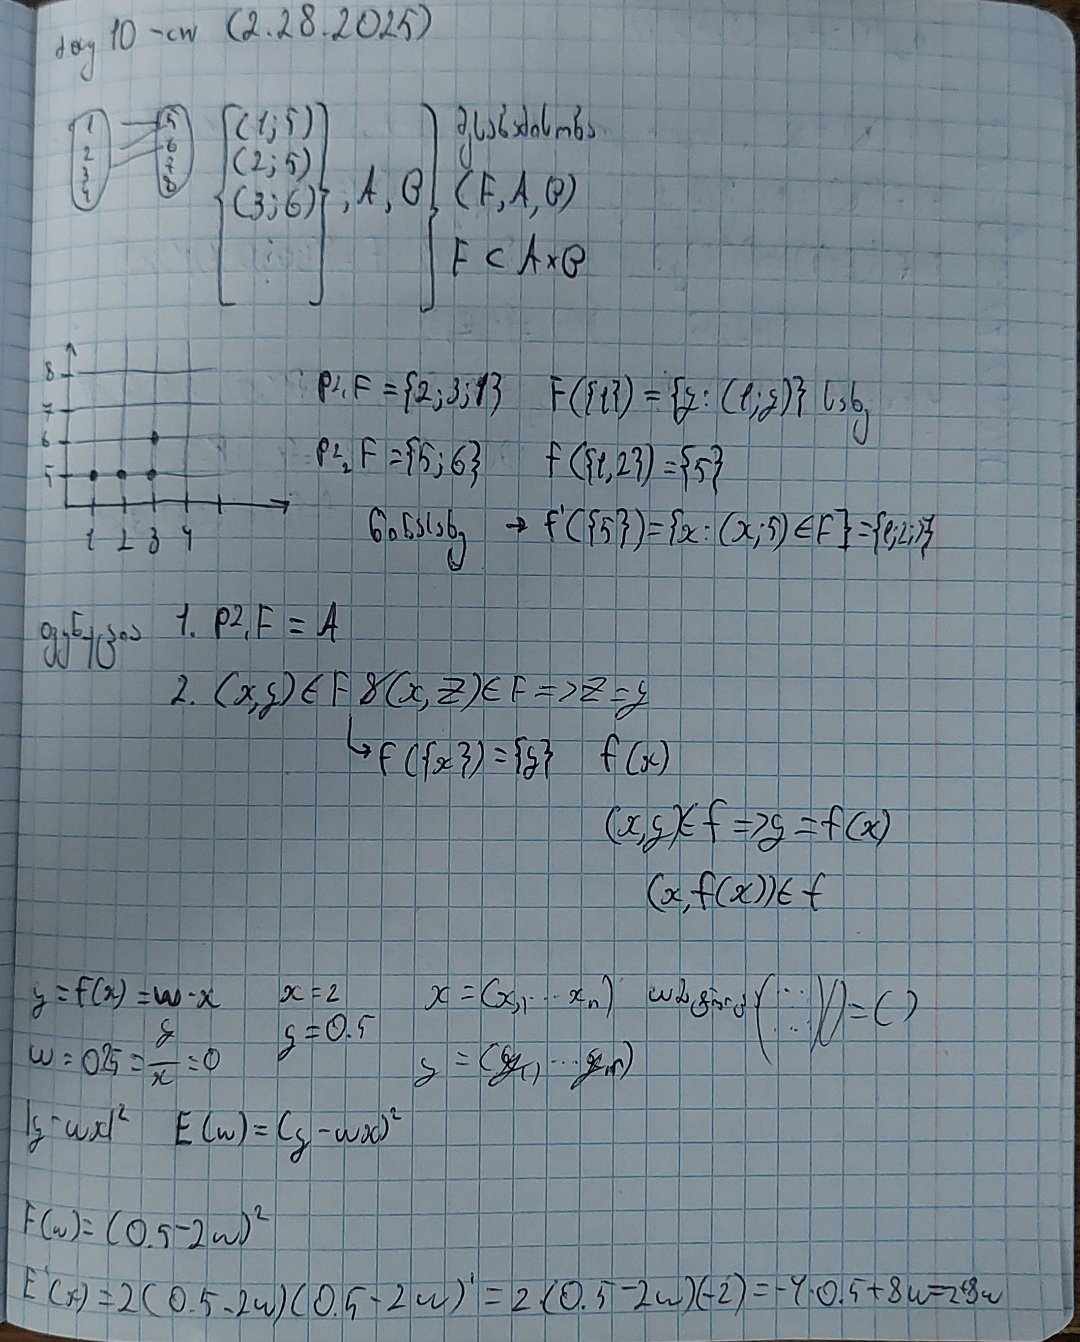 day 10 - cw (2.28.2025)
1 5
2 6
3 7
4 8
(1;5)
(2;5)
(3;6)
⋮
, A, B
(F, A, B)
F ⊂ A×B
8
7
6
5
1 2 3 4
pr₁F = {2;3;1} F({1}) = {y: (1;y)}
pr₂F = {5;6} f({1,2}) = {5}
→ f'({5}) = {x: (x;5) ∈ F} = {1;2;3}
1. pr₁F = A
2. (x,y) ∈ F & (x,z) ∈ F => z = y
↳ F({x}) = {y} f(x)
(x,y) ∈ f => y = f(x)
(x, f(x)) ∈ f
y = f(x) = w·x x = 2 x = (x₁, ... xₙ)
y = 0.5
w = 0.25 = y/x = 0 y = (y₁, ... yₙ)
|y - wx|² E(w) = (y - wx)²
E(w) = (0.5 - 2w)²
E'(x) = 2(0.5 - 2w)(0.5 - 2w)' = 2(0.5 - 2w)(-2) = -4·0.5 + 8w =